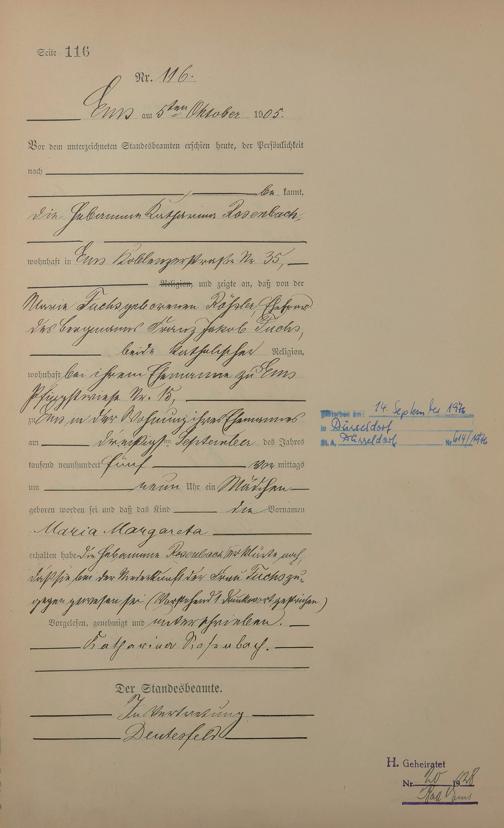 Seite 116
Nr. 116.
Ems am 5ten Oktober 1905.
Vor dem unterzeichneten Standesbeamten erschien heute, der Persönlichkeit
nach
be kannt,
die Hebamme Katharina Rosenbach,
wohnhaft in Ems Koblenzerstraße Nr. 35,
Religion, und zeigte an, daß von der
Marie Fuchs geborenen Rößler, Ehefrau
des Bergmanns Franz Jakob Fuchs,
beide katholischer Religion,
wohnhaft bei ihrem Ehemanne zu Ems
Nr. 15,
zu Ems in der Wohnung ihres Ehemannes
am dreißigsten September des Jahres
tausend neunhundert fünf vor mittags
um neun Uhr ein Mädchen
geboren worden sei und daß das Kind die Vornamen
Maria Margareta
erhalten habe. Die Hebamme Rosenbach erklärte noch,
daß sie bei der Niederkunft der Frau Fuchs zu-
gegen gewesen sei (Vorstehend 1 Druckwort gestrichen)
Vorgelesen, genehmigt und unterschrieben.
Katharina Rosenbach.
Der Standesbeamte.
In Vertretung
14. September 1976
in Düsseldorf
St. A. Düsseldorf Nr. 614/1976
H. Geheiratet
Nr. 20 1928
Bad Ems